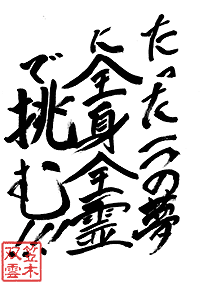 たった一つの夢
に全身全霊
で挑む!!!
笠木
双雲